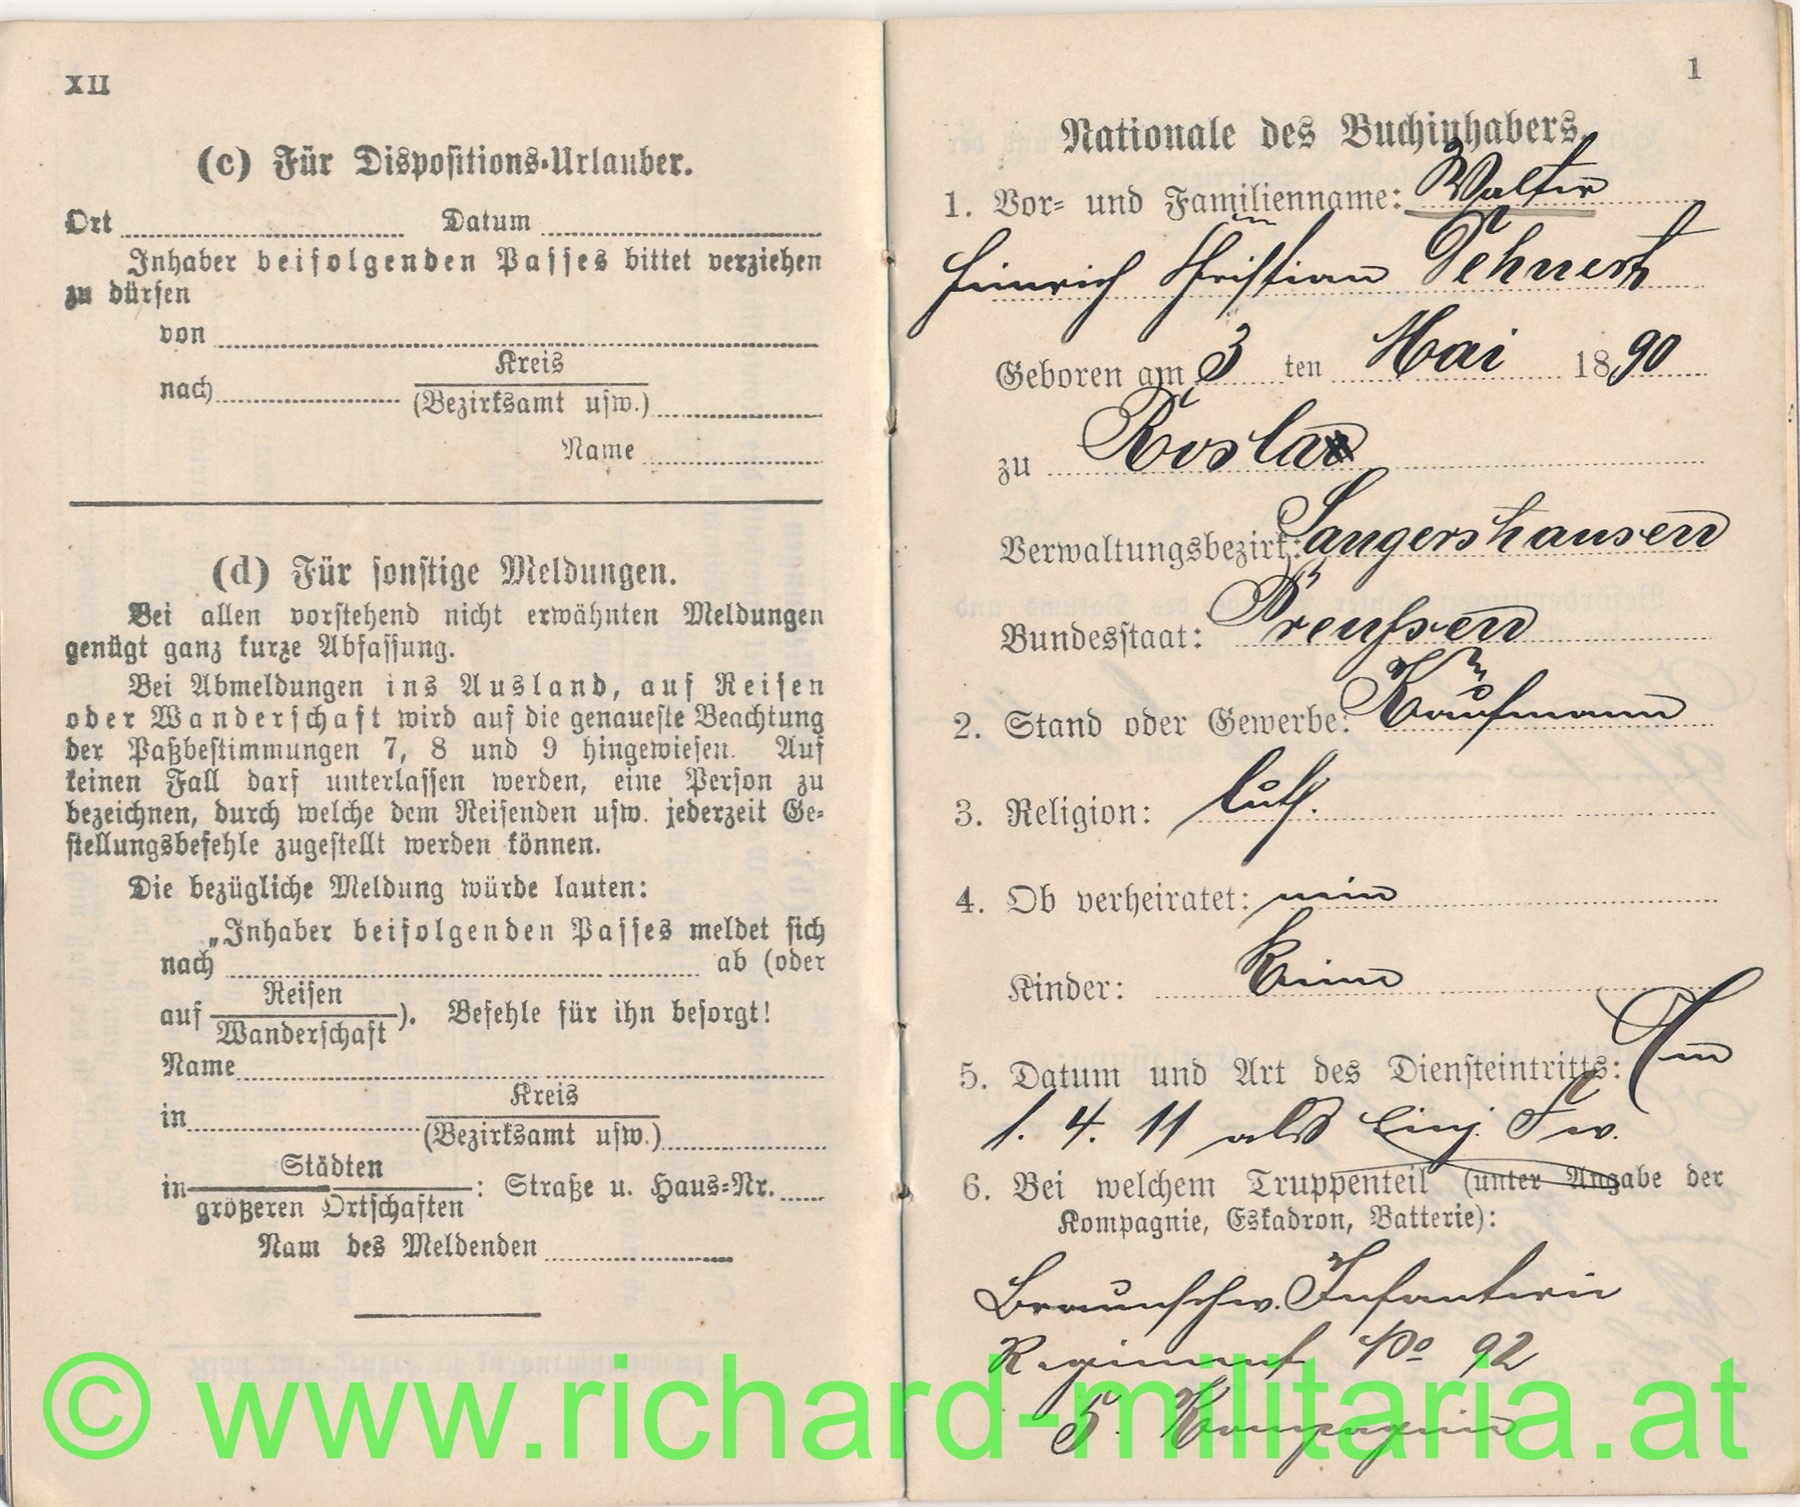 XII
(c) Für Dispositions-Urlauber.
Ort Datum
Inhaber beifolgenden Passes bittet verziehen
zu dürfen
von
nach Kreis
(Bezirksamt usw.)
Name
(d) Für sonstige Meldungen.
Bei allen vorstehend nicht erwähnten Meldungen
genügt ganz kurze Abfassung.
Bei Abmeldungen ins Ausland, auf Reisen
oder Wanderschaft wird auf die genaueste Beachtung
der Paßbestimmungen 7, 8 und 9 hingewiesen. Auf
keinen Fall darf unterlassen werden, eine Person zu
bezeichnen, durch welche dem Reisenden usw. jederzeit Ge-
stellungsbefehle zugestellt werden können.
Die bezügliche Meldung würde lauten:
„Inhaber beifolgenden Passes meldet sich
nach ab (oder
auf Reisen
Wanderschaft). Befehle für ihn besorgt!
Name
in Kreis
(Bezirksamt usw.)
in Städten
größeren Ortschaften: Straße u. Haus-Nr.
Nam des Meldenden
1
Nationale des Buchinhabers.
1. Vor- und Familienname: Walter
Heinrich Christian Tehnert
Geboren am 3 ten Mai 1890
zu Rosla
Verwaltungsbezirk: Sangershausen
Bundesstaat: Preussen
2. Stand oder Gewerbe: Kaufmann
3. Religion: luth.
4. Ob verheiratet: nein
Kinder: keine
5. Datum und Art des Diensteintritts: Am
1. 4. 11 als Einj. Frw.
6. Bei welchem Truppenteil (unter Angabe der
Kompagnie, Eskadron, Batterie):
Braunschw. Infanterie
Regiment No 92
5. Kompagnie
© www.richard-militaria.at